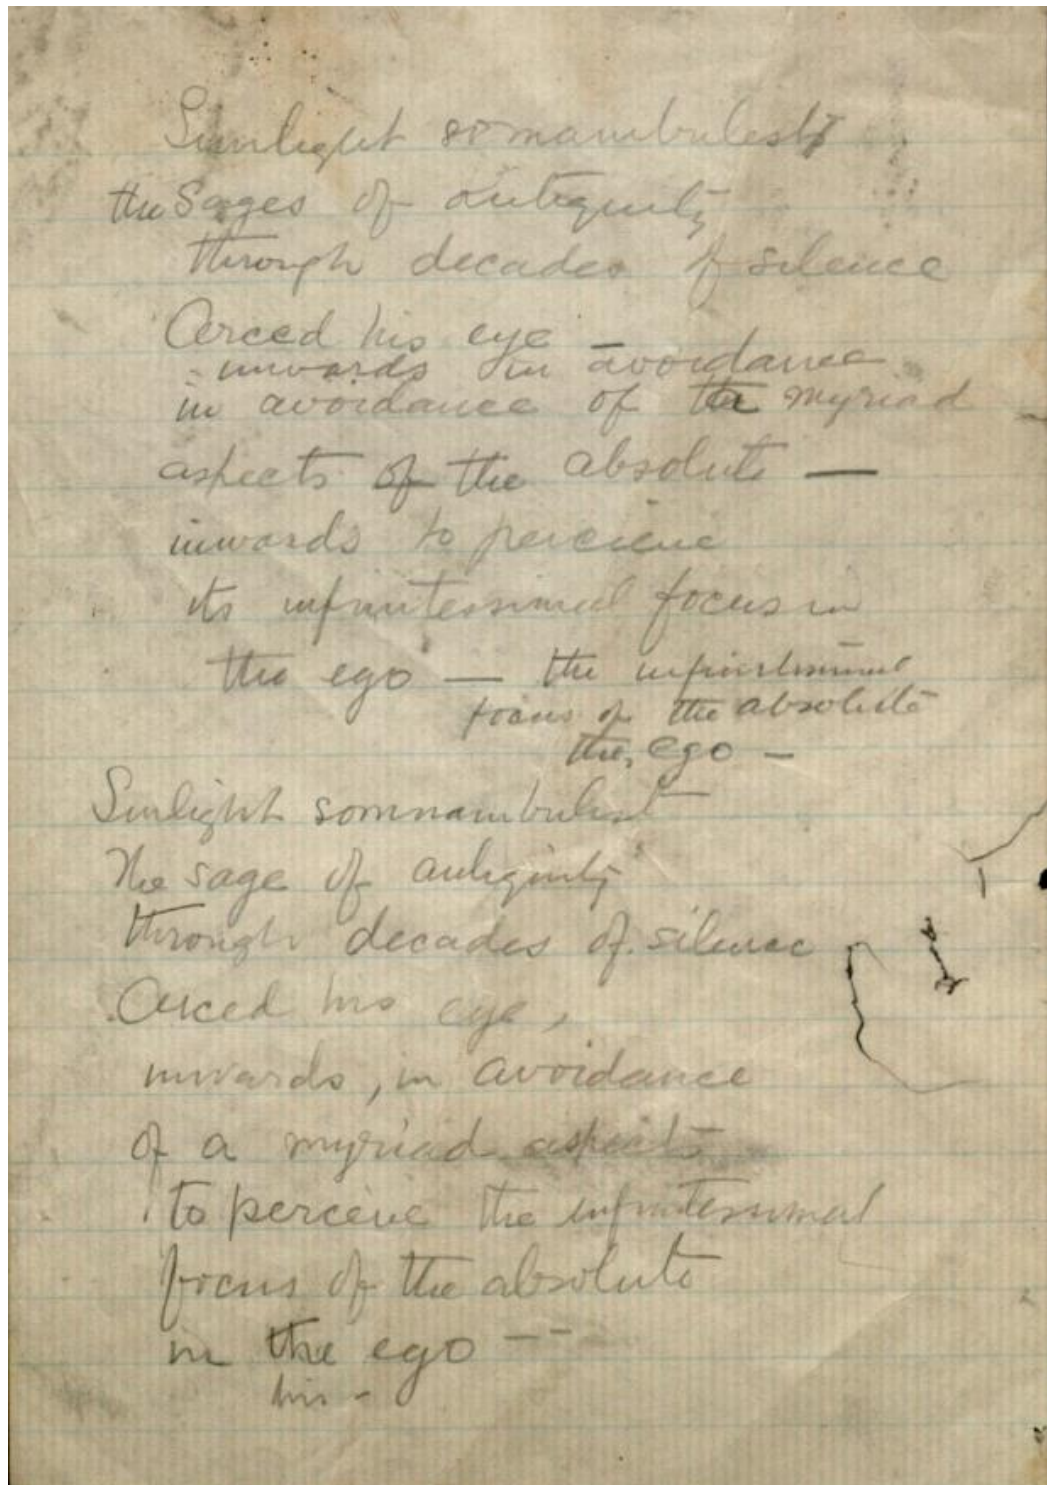 Sunlight somambulist
the Sages of antiquity
through decades of silence
Arced his eye —
inwards in avoidance
in avoidance of the myriad
aspects of the absolute —
inwards to percieve
its infinitessimal focus in
the ego — the infinitessimal
focus of the absolute
the ego —
Sunlight somnambulist
The sage of antiquity
through decades of silence
Arced his eye,
inwards, in avoidance
of a myriad aspects
to perceive the infinitessimal
focus of the absolute
in the ego — —
his -